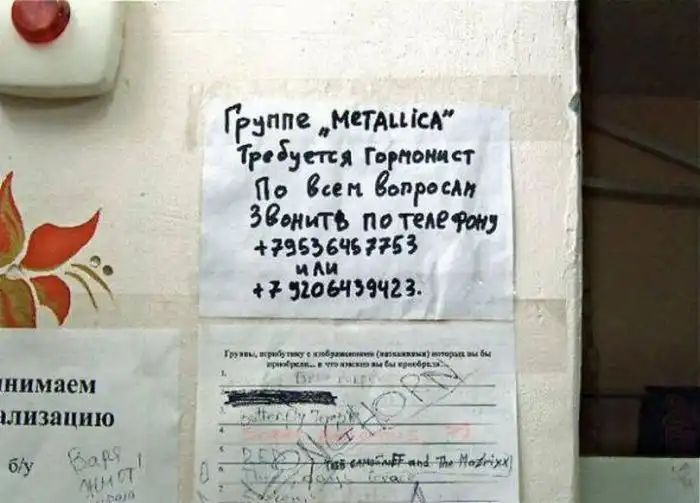 Группе „METALLiCA”
Требуется Гормонист
По всем вопросам
Звонить по телефону
+79536457753
или
+7 9206439423.
Группы, атрибутику с изображениями (названиями) которых вы бы
приобрели... и что именно вы бы приобрели:
1.
Butterfly Temple
4
5
6
and The Matrixx
7
HORN
нимаем
ализацию
б/у
Варя
ЖМОТ!